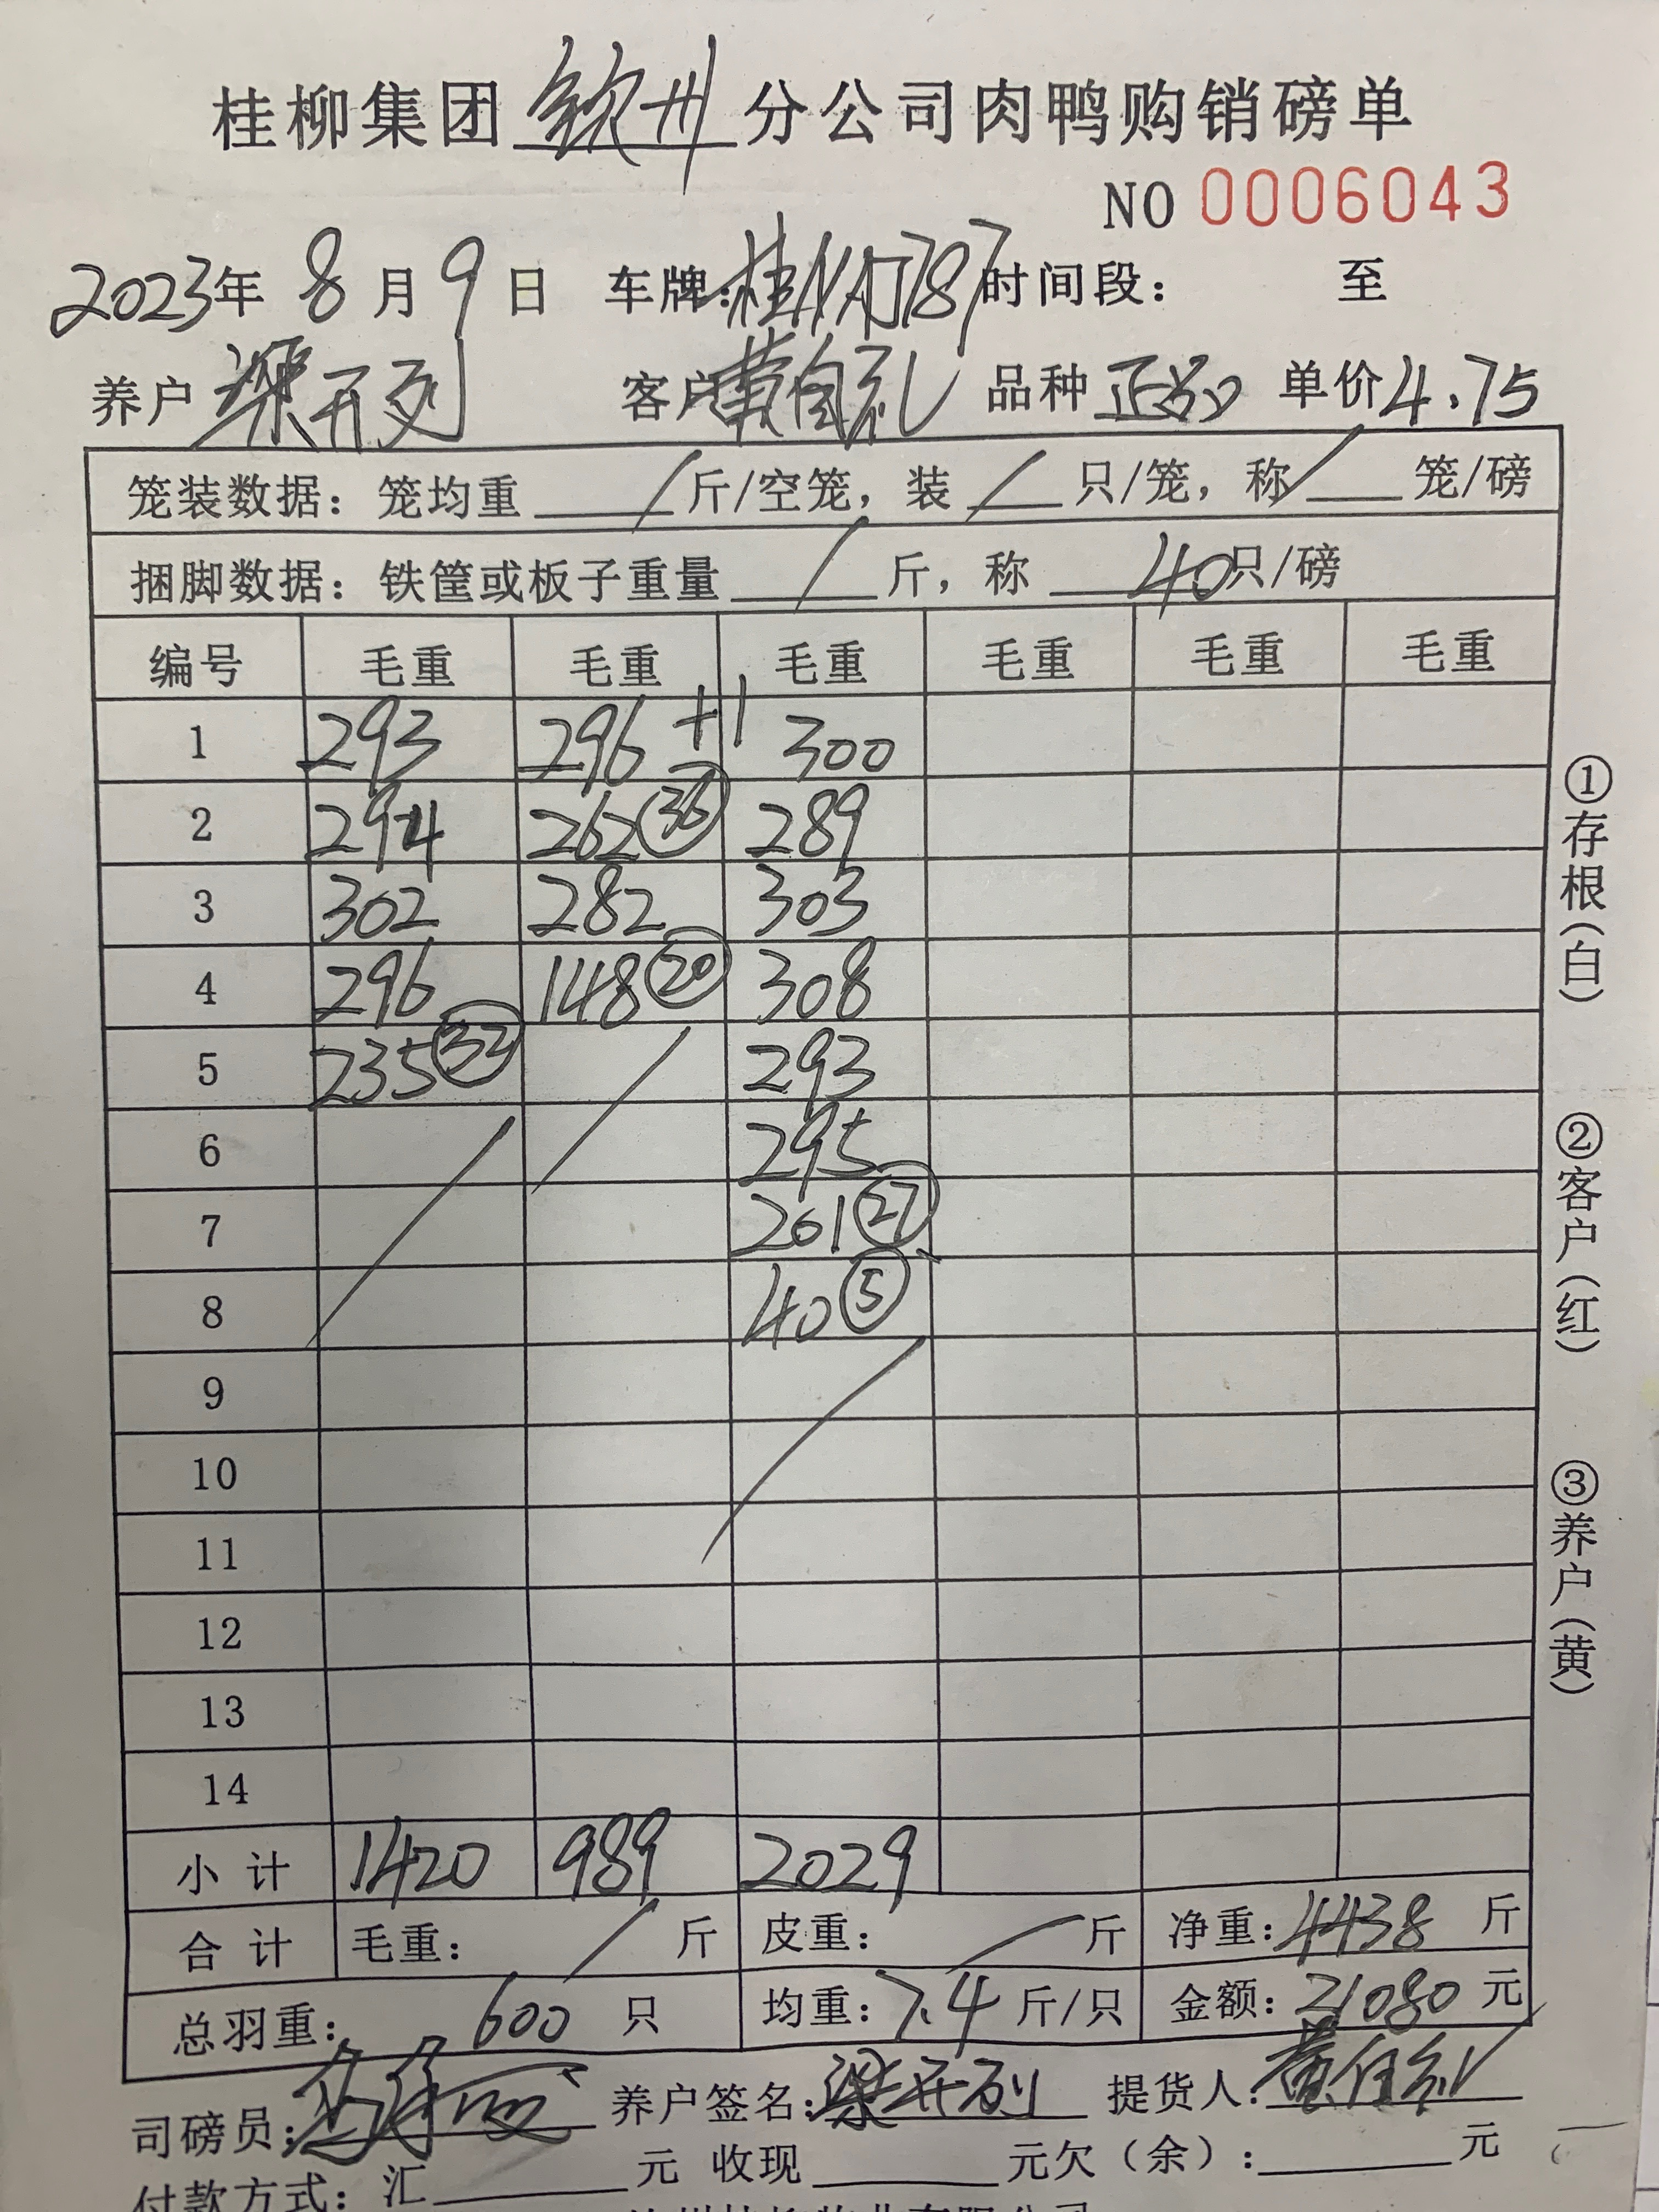 桂柳集团 钦州 分公司肉鸭购销磅单
NO 0006043
2023年 8 月 9 日 车牌: 时间段: 至
养户 梁开列 客户 黄自 品种 正 单价 4.75
笼装数据: 笼均重 / 斤/空笼, 装 / 只/笼, 称 / 笼/磅
捆脚数据: 铁筐或板子重量 / 斤, 称 40 只/磅
编号 毛重 毛重 毛重 毛重 毛重 毛重
1 293 296 +1 300
2 294 262 (36) 289
3 302 282 303
4 296 148 (20) 308
5 235 (32) 293
6 295
7 201 (27)
8 40 (5)
9
10
11
12
13
14
小计 1420 989 2029
合计 毛重: / 斤 皮重: / 斤 净重: 4438 斤
总羽重: 600 只 均重: 7.4 斤/只 金额: 21080 元
司磅员: 养户签名: 梁开列 提货人: 黄
付款方式: 汇 元 收现 元欠(余): 元
①存根(白)
②客户(红)
③养户(黄)